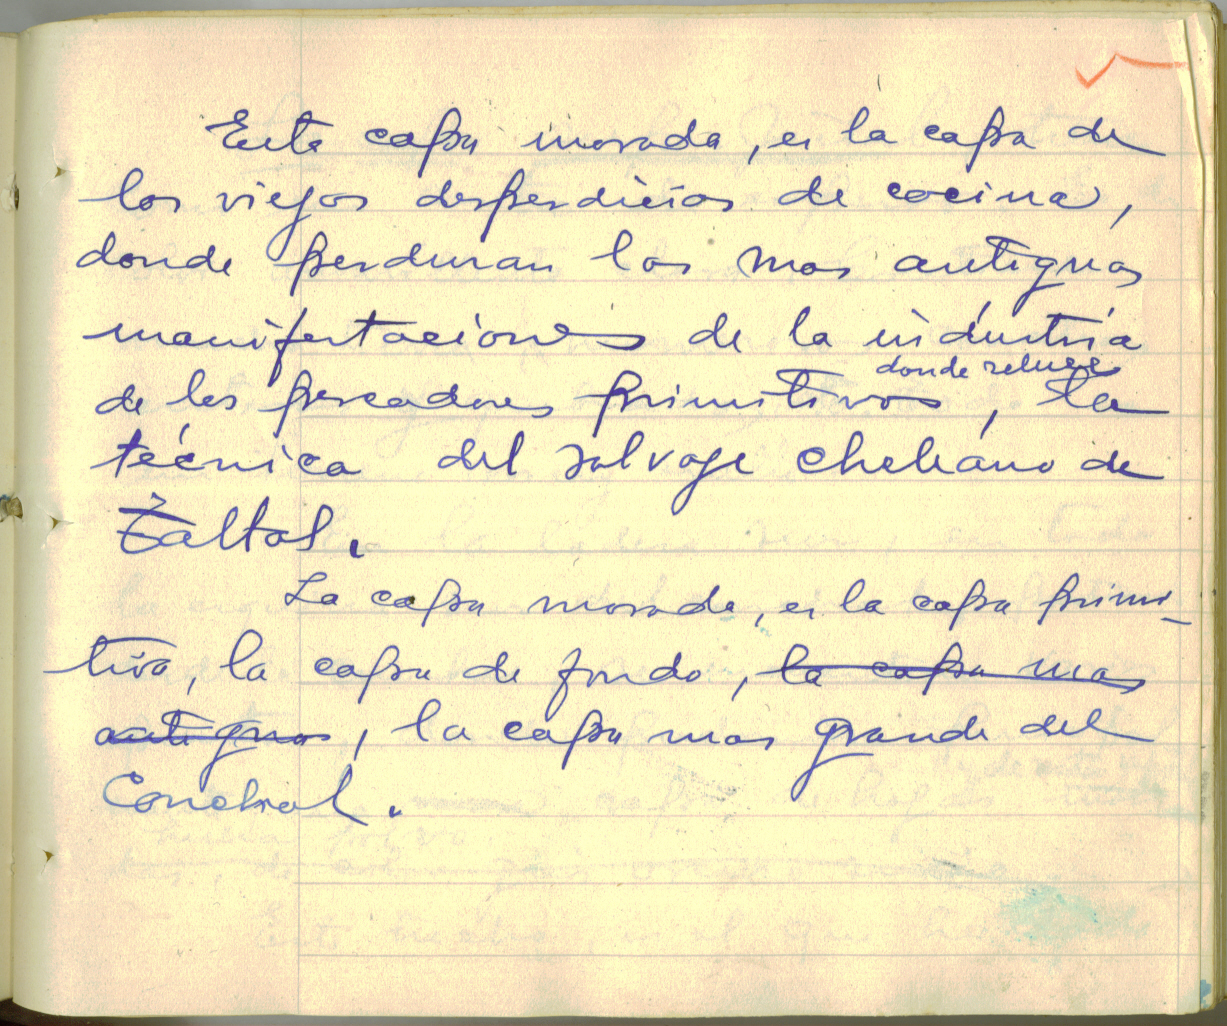 Esta capa morada, es la capa de
los viejos desperdicios de cocina,
donde perduran las mas antiguas
manifestaciones de la indústria
donde reluce
de los pescadores primitivos, la
técnica del salvaje cheleano de
Taltal.
La capa morada, es la capa primi-
tiva, la capa de fondo, la capa mas
antigua, la capa mas grande del
Conchal.